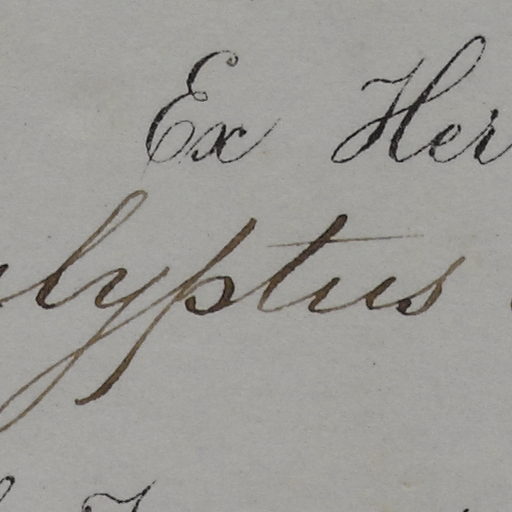 Ex Her
alyptus